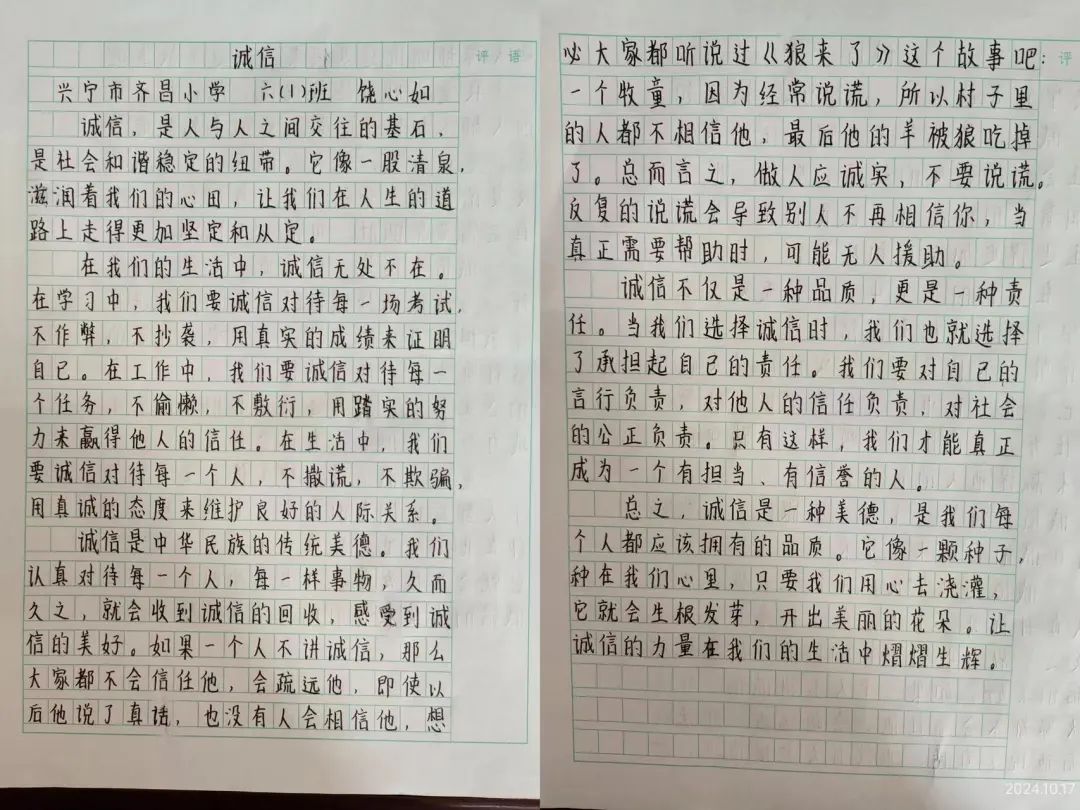 诚信
评 语
兴宁市齐昌小学 六(1)班 饶心如
诚信，是人与人之间交往的基石，
是社会和谐稳定的纽带。它像一股清泉，
滋润着我们的心田，让我们在人生的道
路上走得更加坚定和从定。
在我们的生活中，诚信无处不在。
在学习中，我们要诚信对待每一场考试，
不作弊，不抄袭，用真实的成绩来证明
自己。在工作中，我们要诚信对待每一
个任务，不偷懒，不敷衍，用踏实的努
力来赢得他人的信任。在生活中，我们
要诚信对待每一个人，不撒谎，不欺骗，
用真诚的态度来维护良好的人际关系。
诚信是中华民族的传统美德。我们
认真对待每一个人，每一样事物，久而
久之，就会收到诚信的回收，感受到诚
信的美好。如果一个人不讲诚信，那么
大家都不会信任他，会疏远他，即使以
后他说了真话，也没有人会相信他，想
必大家都听说过《狼来了》这个故事吧：
评
一个牧童，因为经常说谎，所以村子里
的人都不相信他，最后他的羊被狼吃掉
了。总而言之，做人应诚实，不要说谎。
反复的说谎会导致别人不再相信你，当
真正需要帮助时，可能无人援助。
诚信不仅是一种品质，更是一种责
任。当我们选择诚信时，我们也就选择
了承担起自己的责任。我们要对自己的
言行负责，对他人的信任负责，对社会
的公正负责。只有这样，我们才能真正
成为一个有担当、有信誉的人。
总之，诚信是一种美德，是我们每
个人都应该拥有的品质。它像一颗种子，
种在我们心里，只要我们用心去浇灌，
它就会生根发芽，开出美丽的花朵。让
诚信的力量在我们的生活中熠熠生辉。
2024.10.17